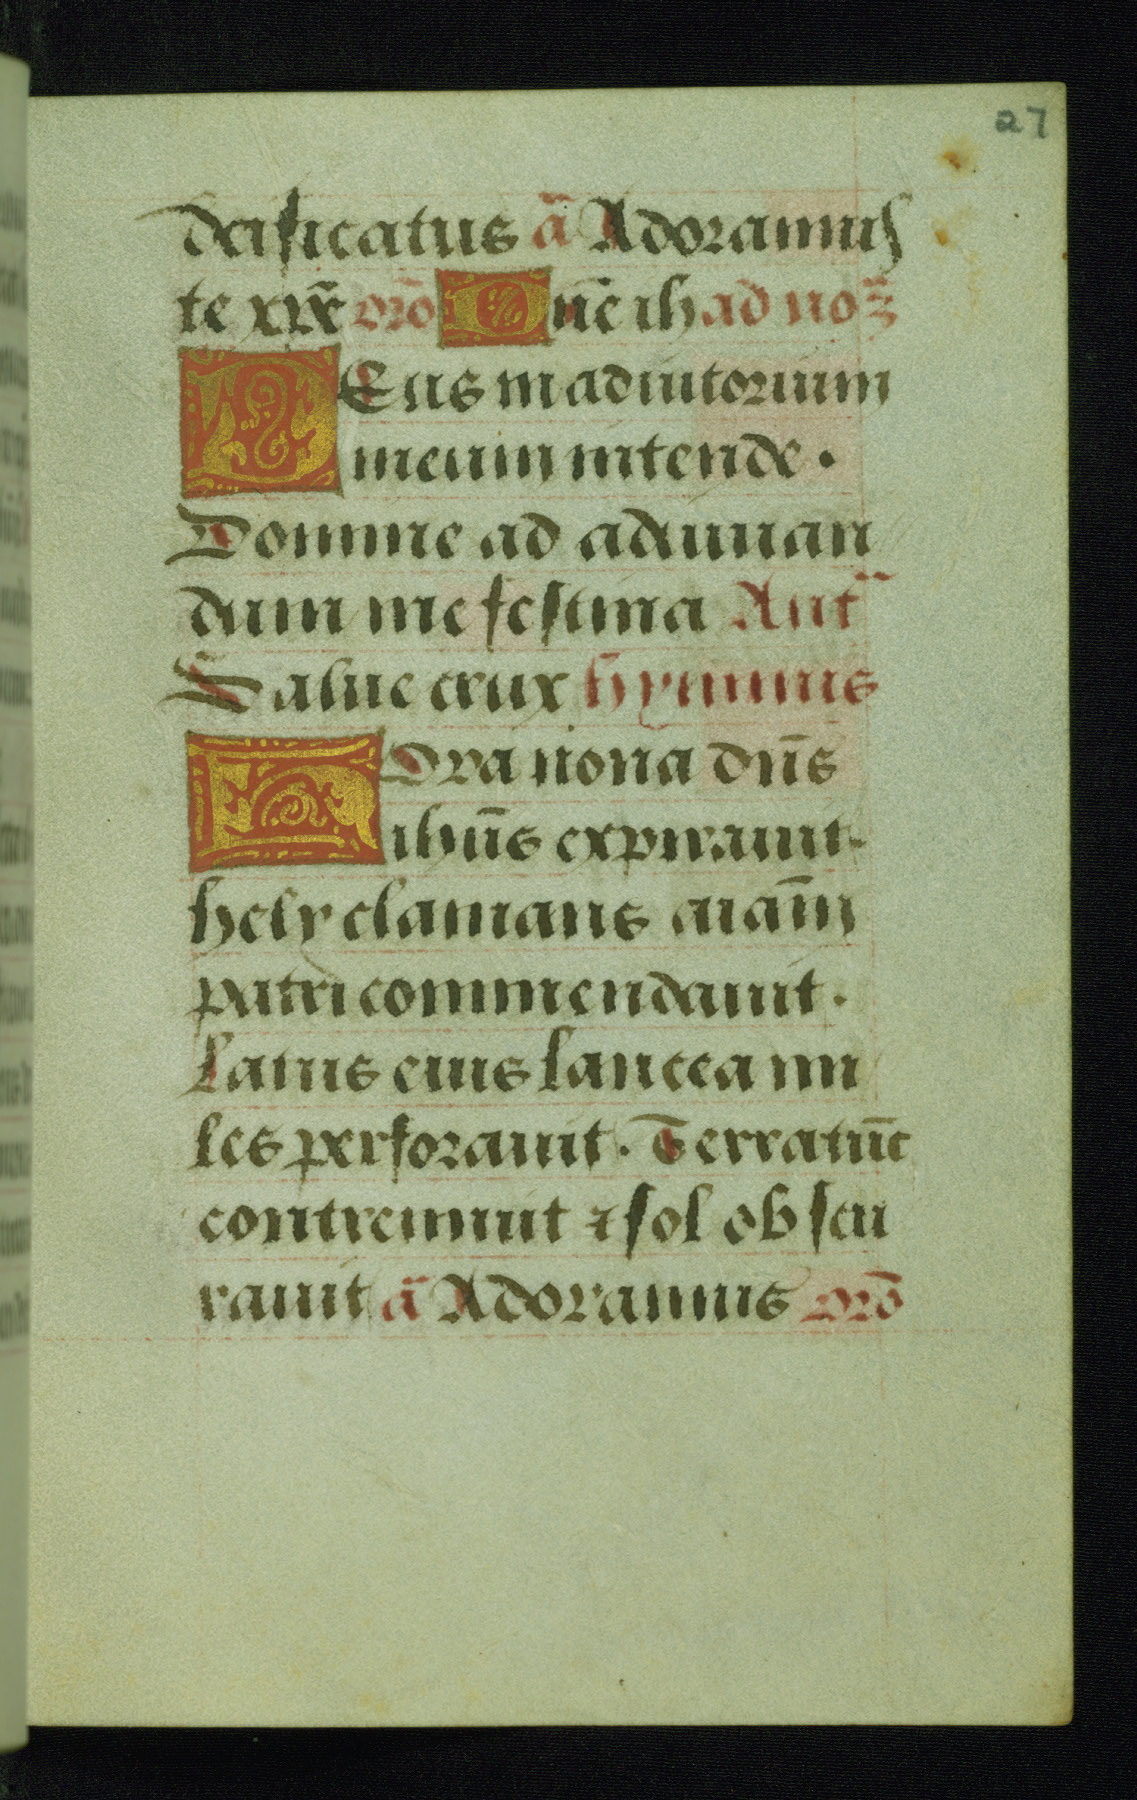 27
deificatus ã Adoramus
te xp̃e orõ Dñe ih ad noꝫ̃
DEus in adiutorium
meum intende.
Domine ad adiuuan
dum me festina Ant̃
Salue crux hymnus
HOra nona dñs
ihũs expirauit.
hely clamans aiam̃
patri commendauit.
Latus eius lancea mi
les perforauit. Terra tũc
contremuit ⁊ sol obscu
rauit ã Adoramus orõ